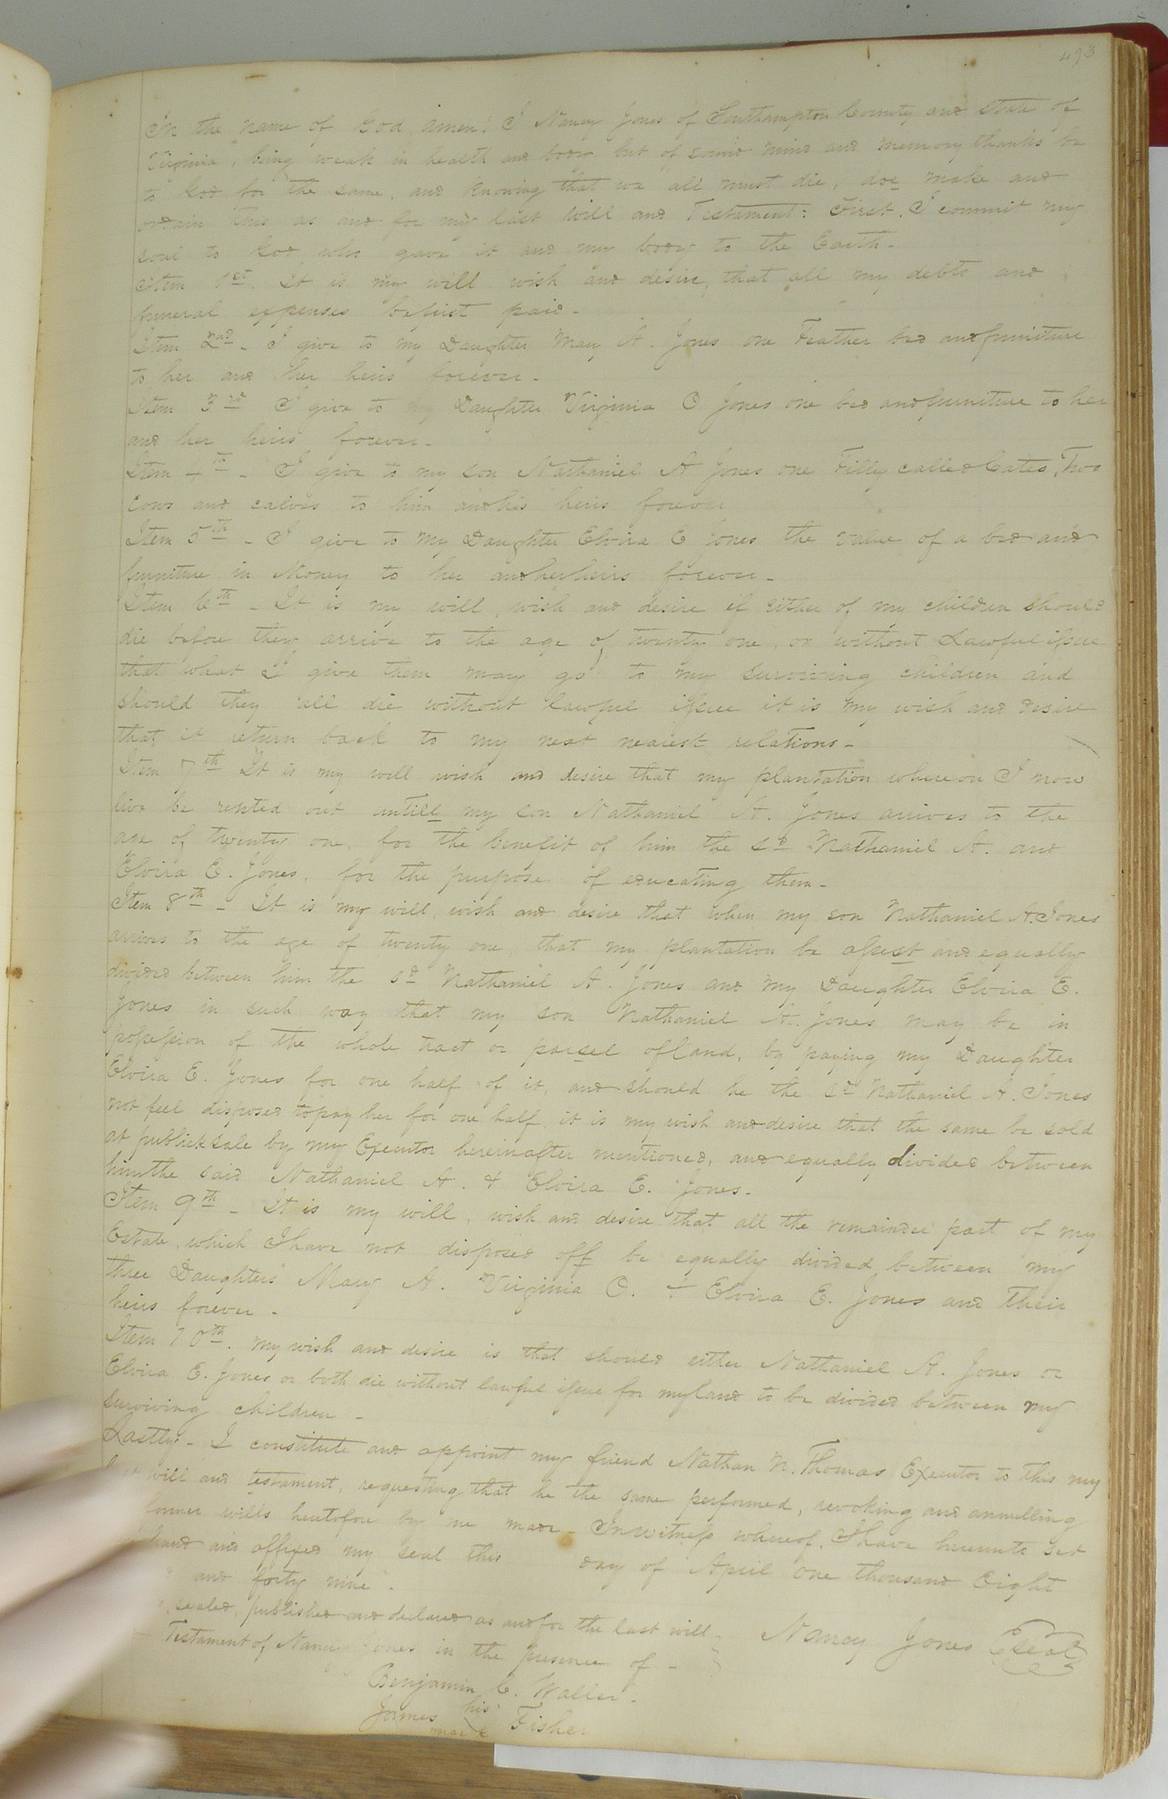 493
In the name of God, amen! I Nancy Jones of Southampton County and State of
Virginia, being weak in health and body but of sound mind and memory thanks be
to God for the same, and knowing that we all must die, doe make and
ordain this as and for my last will and Testament: First. I commit my
soul to God who gave it and my body to the Earth.
Item 1st. It is my will wish and desire, that all my debts and
funeral expenses be first paid.
Item 2nd - I give to my Daughter Mary A. Jones one Feather bed and furniture
to her and her heirs forever.
Item 3rd I give to my Daughter Virginia O Jones one bed and furniture to her
and her heirs forever.
Item 4th - I give to my son Nathaniel A Jones one Filly called Cates, Two
cows and calves to him and his heirs forever
Item 5th - I give to my Daughter Elvira E Jones the value of a bed and
furniture in Money to her and her heirs forever.
Item 6th - It is my will, wish and desire if either of my children should
die before they arrive to the age of twenty one, or without Lawful issue
that what I give them may go to my surviving children and
should they all die without lawful issue it is my wish and desire
that it return back to my next nearest relations -
Item 7th It is my will wish and desire that my plantation whereon I now
live be rented out untill my son Nathaniel A. Jones arrives to the
age of twenty one, for the benefit of him the sd Nathaniel A. and
Elvira E. Jones, for the purpose of educating them -
Item 8th - It is my will, wish and desire that when my son Nathaniel A. Jones
arrives to the age of twenty one, that my plantation be assest and equally
divided between him the sd Nathaniel A. Jones and my Daughter Elvira E.
Jones in such way that my son Nathaniel A. Jones may be in
possession of the whole tract or parsel of land, by paying my Daughter
Elvira E. Jones for one half of it, and should he the sd Nathaniel A. Jones
not feel disposed to pay her for one half, it is my wish and desire that the same be sold
at publick sale by my Executor hereinafter mentioned, and equally divided between
him the said Nathaniel A. & Elvira E. Jones.
Item 9th - It is my will, wish and desire that all the remainder part of my
Estate, which I have not disposed off be equally divided between my
three Daughters Mary A. Virginia O. & Elvira E. Jones and their
heirs forever.
Item 10th. my wish and desire is that should either Nathaniel A. Jones or
Elvira E. Jones or both die without lawful issue for my land to be divided between my
surviving children -
Lastly - I constitute and appoint my friend Nathan N. Thomas Executor to this my
will and testament, requesting that he the same performed, revoking and annulling
former wills heretofore by me made - In witness whereof, I have hereunto set
hand and affixed my seal this day of April one thousand Eight
and forty nine.
sealed, published and declared as and for the last will
Testament of Nancy Jones in the presence of - Nancy Jones Seal
Benjamin C. Waller.
James his Fisher
mark